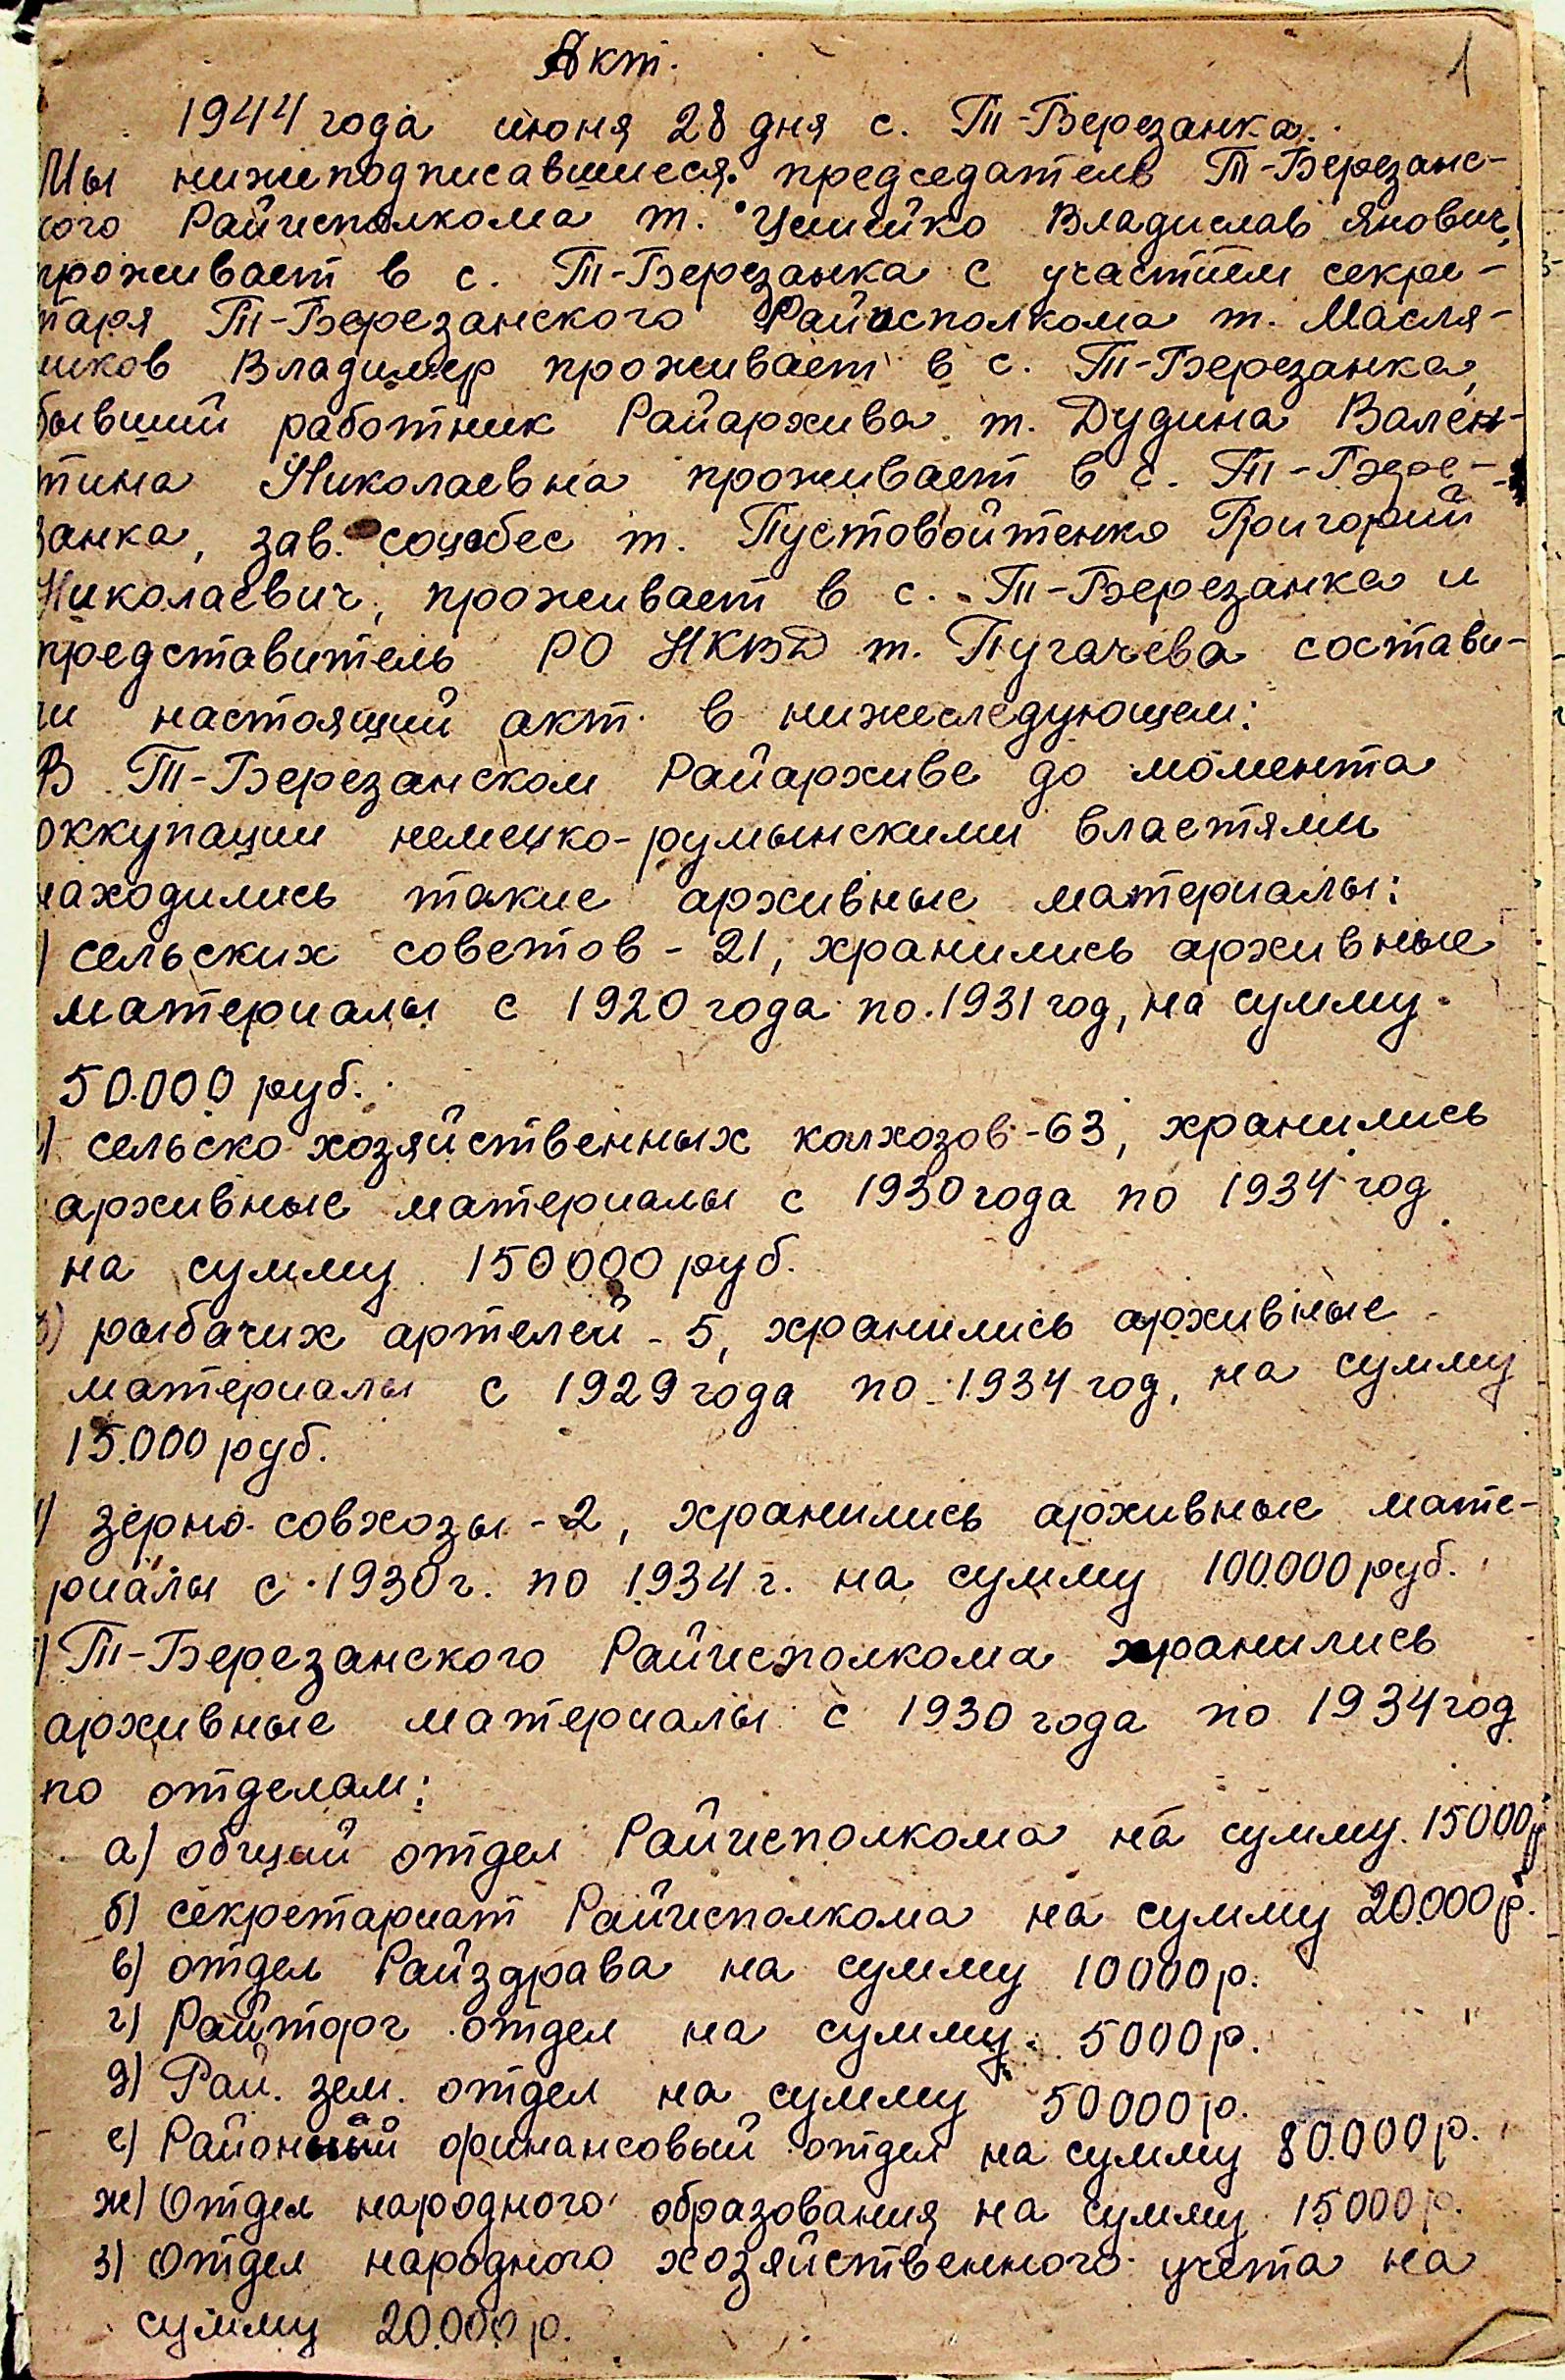 Акт.
1
1944 года июня 28 дня с. Т-Березанка.
Мы нижеподписавшиеся председатель Т-Березанс-
кого Райисполкома т. Владислав Янович,
проживает в с. Т-Березанка с участием секре-
таря Т-Березанского Райисполкома т. Масля-
ников Владимер проживает в с. Т-Березанка,
бывший работник Райархива т. Дудина Вален-
тина Николаевна проживает в с. Т-Бере-
занка, зав. соцобес т. Пустовойтенко Григорий
Николаевич, проживает в с. Т-Березанка и
представитель РО НКВД т. Пугачева состави-
ли настоящий акт в нижеследующем:
В Т-Березанском Райархиве до момента
оккупации немецко-румынскими властями
находились такие архивные материалы:
) сельских советов - 21, хранились архивные
материалы с 1920 года по 1931 год, на сумму
50.000 руб.
) сельско хозяйственных колхозов - 63, хранились
архивные материалы с 1930 года по 1934 год
на сумму 150000 руб.
) рыбачих артелей - 5, хранились архивные
материалы с 1929 года по 1934 год, на сумму
15.000 руб.
) зерно-совхозы - 2, хранились архивные мате-
риалы с 1930 г. по 1934 г. на сумму 100.000 руб.
) Т-Березанского Райисполкома хранились
архивные материалы с 1930 года по 1934 год
по отделам:
а) общий отдел Райисполкома на сумму 15000р
б) секретариат Райисполкома на сумму 20.000р.
в) отдел Райздрава на сумму 10000р.
г) Райторг отдел на сумму 5000р.
д) Рай. зем. отдел на сумму 50000р.
е) Районый финансовый отдел на сумму 80.000р.
ж) Отдел народного образования на сумму 15000р.
з) Отдел народного хозяйственного учета на
сумму 20.000р.